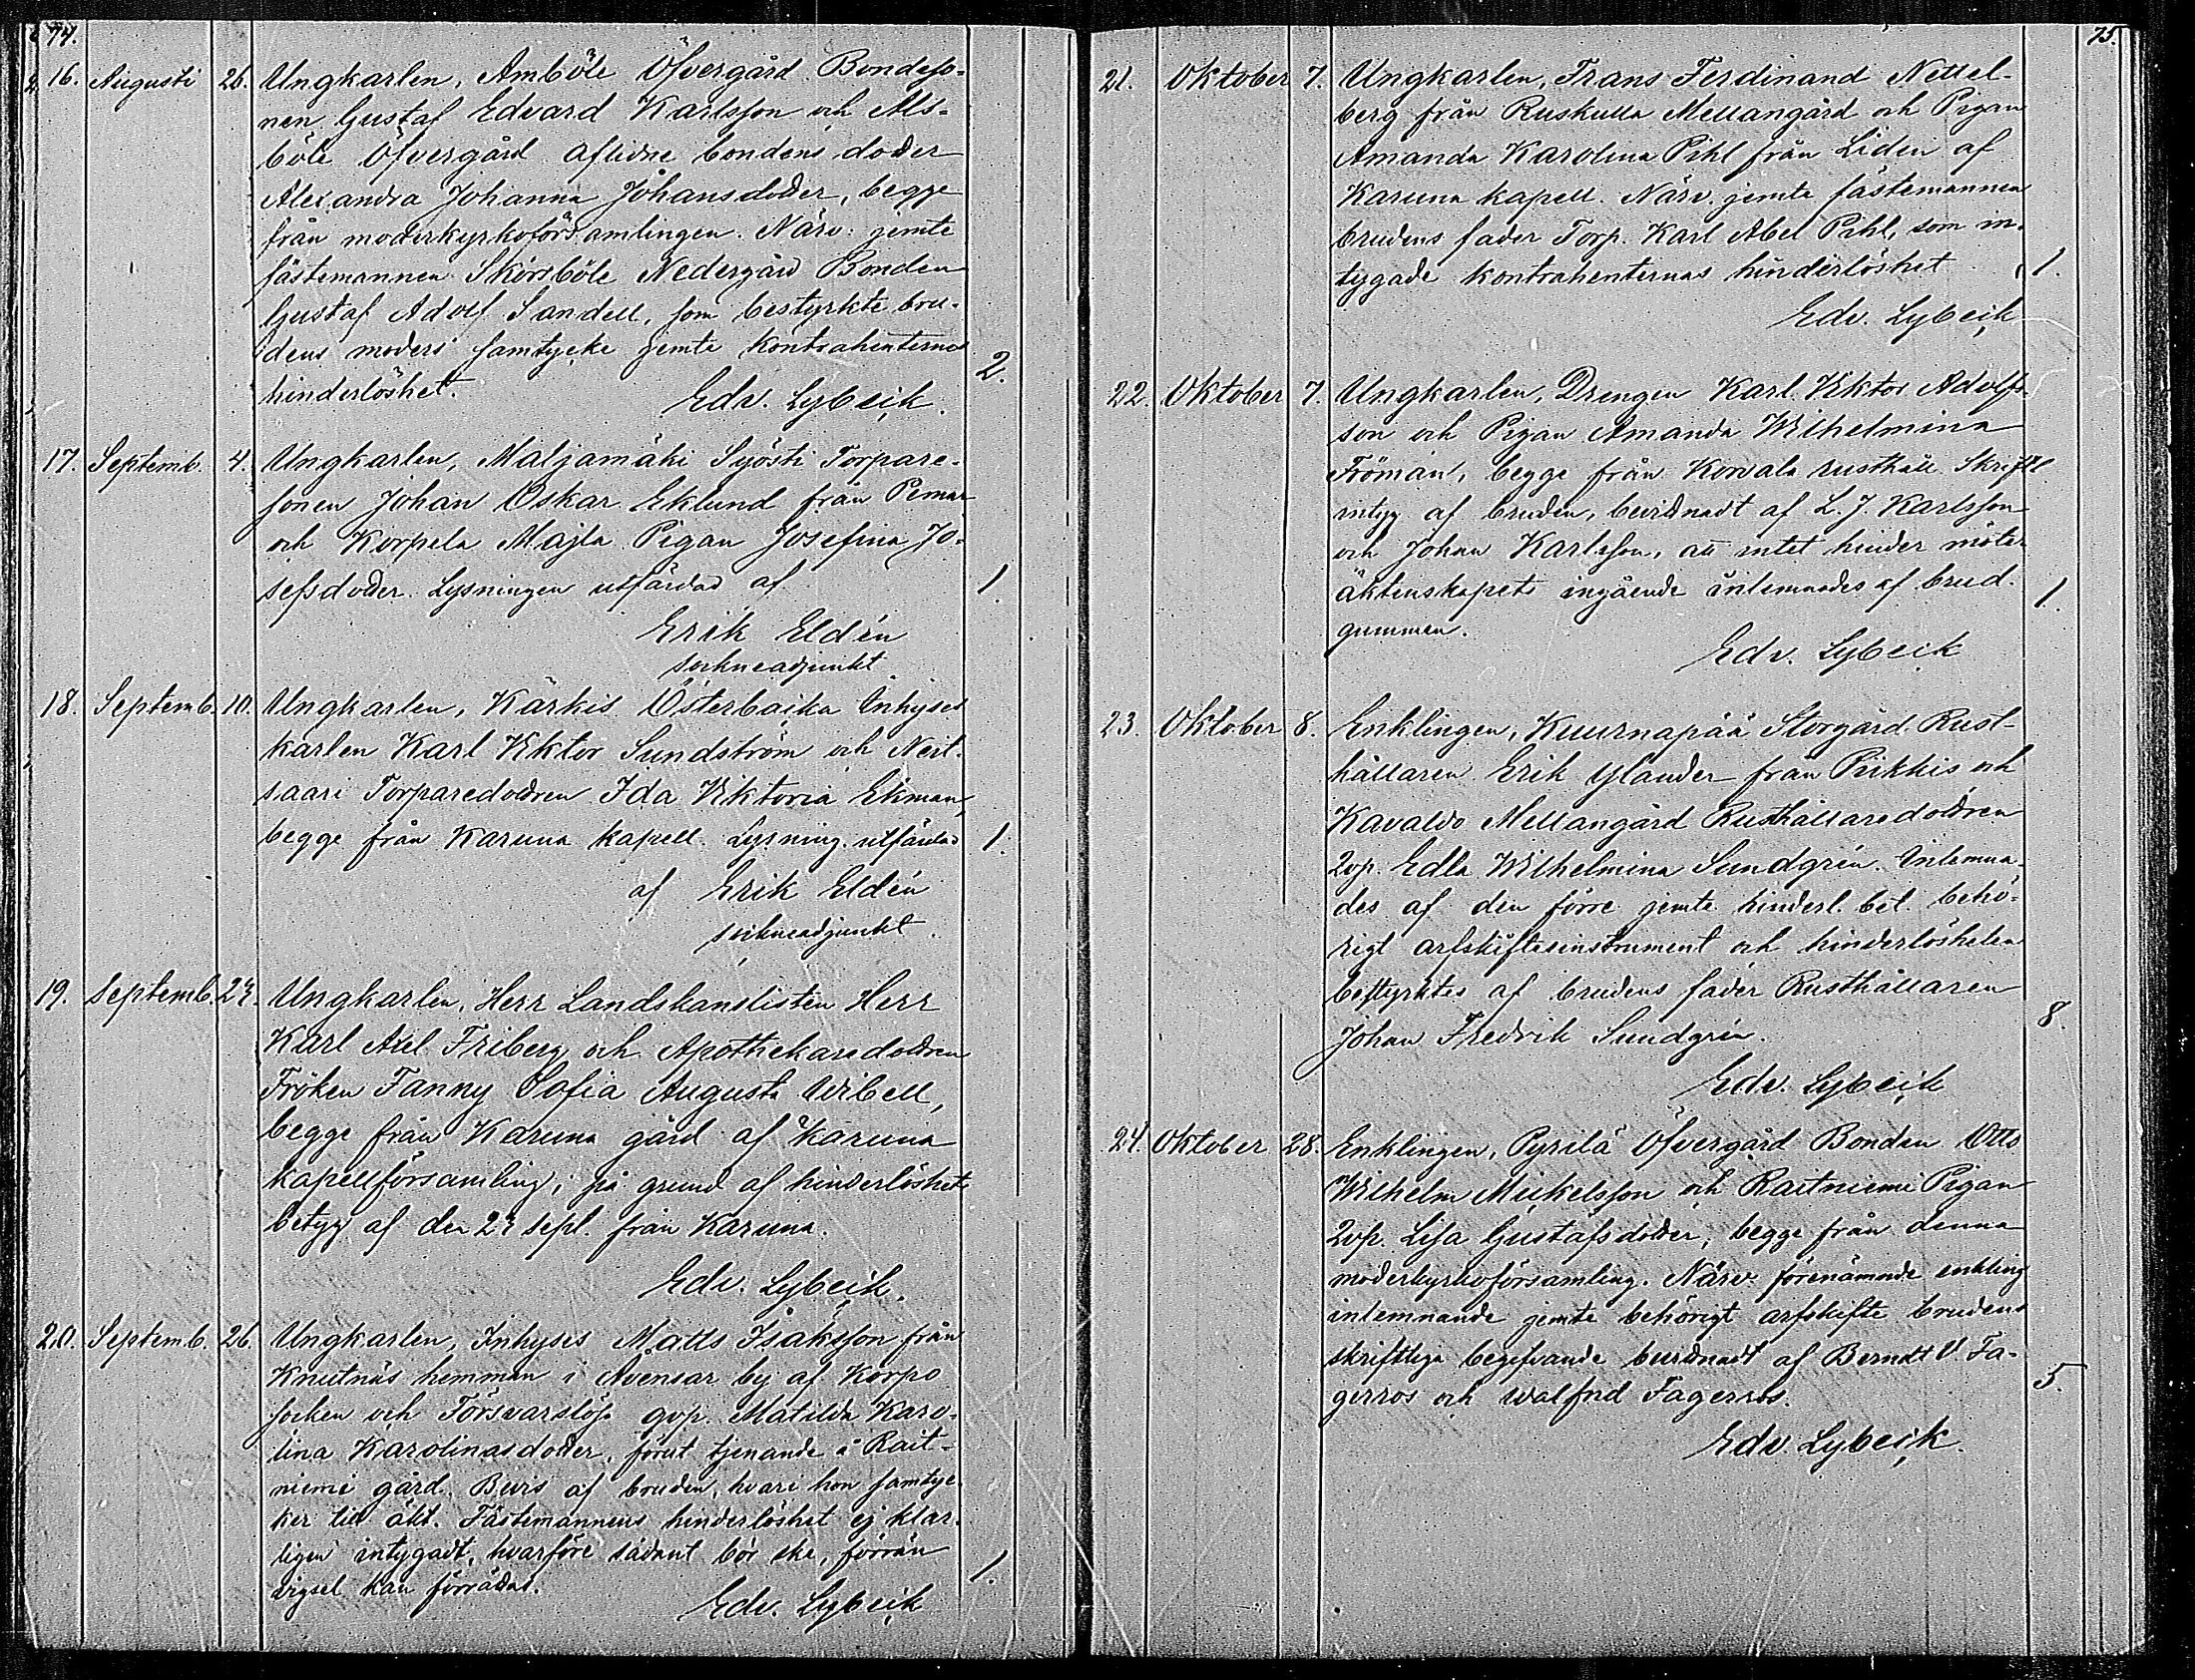 74.
16. Augusti 26. Ungkarlen, Amböle Öfvergård Bondeso-
nen Gustaf Edvard Karlsson och Als-
böle Öfvergård aflidne bondens dotter
Alexandra Johanna Johansdotter, begge
från moderkyrkoförsamlingen. Närv. jemte
fästemannen Skörsböle Nedergård Bonden
Gustaf Adolf Sandell, som bestyrkte bru-
dens moders samtycke jemte kontrahenternes
hinderlöshet. 2.
Edv. Lybeck.
17. Septemb. 4. Ungkarlen, Maljamäki Syösti Torpare-
sonen Johan Oskar Eklund från Pemar
och Korpela Majla Pigan Josefina Jo-
sefsdotter. Lysningen utfärdad af 1.
Erik Eldén
sockneadjunkt
18. Septemb. 10. Ungkarlen, Kärkis Österbacka Inhyses
karlen Karl Viktor Sundström och
saari Torparedottren Ida Viktoria Ekman,
begge från Karuna kapell. Lysning. utfärdad 1.
af Erik Eldén
sockneadjunkt.
19. Septemb. Ungkarlen, Herr Landskanslisten Herr
Karl Axel Friberg och Apothekaredottren
Fröken Fanny Sofia Augusta Wibell,
begge från Karuna gård af Karuna
kapellförsamling, på grund af hinderlöshets
betyg af den sept. från Karuna.
Edv. Lybeck.
20. Septemb. 26. Ungkarlen, Inhyses Matts Isaksson från
Knutnäs hemman i Åvensar by af Korpo
socken och Försvarslösa qvp. Matilda Karo-
lina Karolinasdotter, förut tjenande å Rait-
niemi gård. Bevis af bruden, hvari hon samtyc-
ker till äkt. Fästemannens hinderlöshet ej klar-
ligen intygadt, hvarföre sådant bör ske, förrän
vigsel kan förrättas. 1.
Edv. Lybeck
75.
21. Oktober 7. Ungkarlen, Frans Ferdinand Nettel-
berg från Ruskulla Mellangård och Pigan
Amanda Karolina Pihl från Liden af
Karuna kapell. Närv. jemte fästemannen
brudens fader Torp. Karl Abel Pihl, som in-
tygade kontrahenternas hinderlöshet 1.
Edv. Lybeck
22. Oktober 7. Ungkarlen, Drengen Karl Viktor Adolfs-
son och Pigan Amanda Wilhelmina
Fröman, begge från Korvala rusthåll. Skriftl
intyg af bruden, bevittnadt af L. J. Karlsson
och Johan Karlsson, att intet hinder möter
äktenskapets ingående inlemnades af brud-
gummen. 1.
Edv. Lybeck
23. Oktober 8. Enklingen, Kuurnapää Storgård Rust-
hållaren Erik Ylander från Piikkis och
Kavaldo Mellangård Rusthållaredottren
qvp. Edla Wilhelmina Sundgrén. Inlemna-
des af den förre jemte hinderl. bet. behö-
rigt arfskiftesinstrument och hinderlösheten
bestyrktes af brudens fader Rusthållaren 8.
Johan Fredrik Sundgrén.
Edv. Lybeck
24. Oktober 28. Enklingen, Pyrilä Öfvergård Bonden Otto
Wilhelm Mickelsson och Raitniemi Pigan
qvp. Lisa Gustafsdotter, begge från denna
moderkyrkoförsamling. Närv. förenämnde enkling
inlemnande jemte behörigt arfskifte brudens
skriftliga begifvande bevittnadt af Berndt V. Fa-
gerros och Walfrid Fagerros. 5.
Edv. Lybeck.